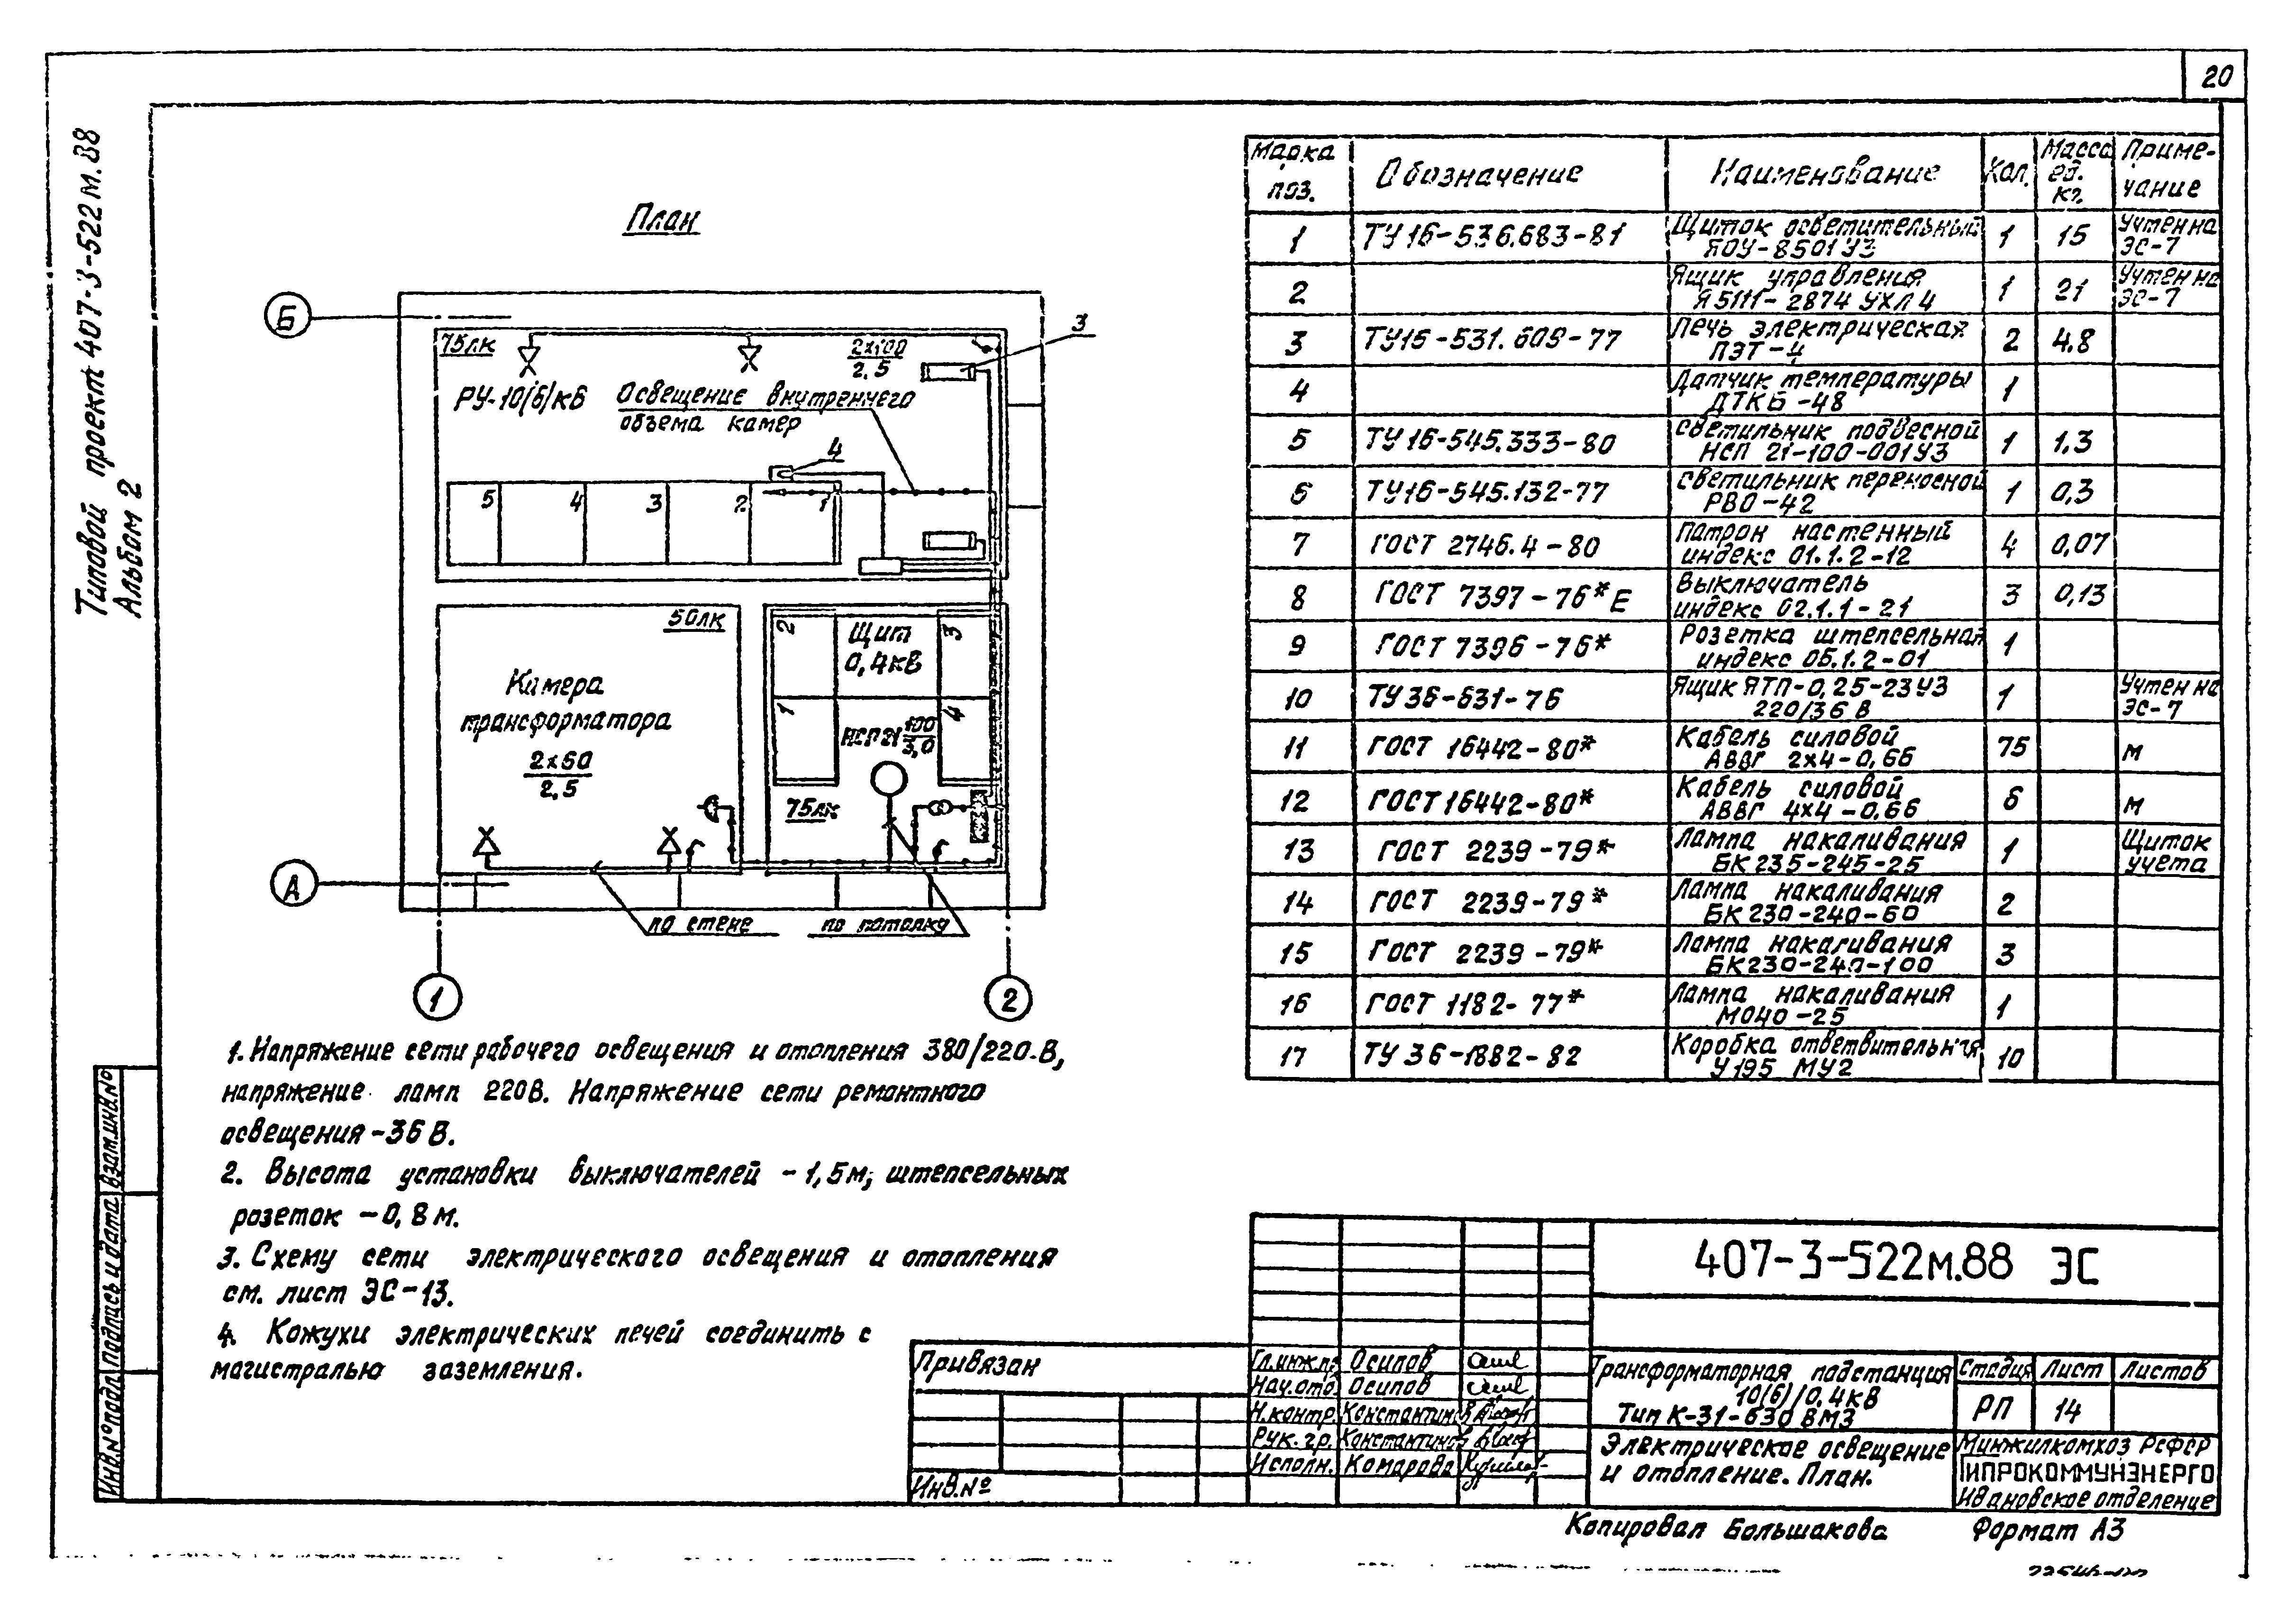 20
Типовой проект 407-3-522м.88
Альбом 2
План
Б
75лк
2х100
2.5
3
РУ-10(6)кВ
Освещение внутреннего
объема камер
4
5 4 3 2 1
50лк
Камера
трансформатора
2х60
2.5
2
Щит
0,4кВ
3
1
НСП21 100
3,0
4
75лк
А
по стене
по потолку
1
2
1. Напряжение сети рабочего освещения и отопления 380/220-В,
напряжение ламп 220В. Напряжение сети ремонтного
освещения-36 В.
2. Высота установки выключателей - 1,5м; штепсельных
розеток - 0,8м.
3. Схему сети электрического освещения и отопления
см. лист ЭС-13.
4. Кожухи электрических печей соединить с
магистралью заземления.
Марка поз. Обозначение Наименование Кол. Масса ед. кг Приме-чание
1 ТУ16-536.683-81 Щиток осветительный ЯОУ-8501У3 1 15 Учтен на ЭС-7
2 Ящик управления Я5111-2874 УХЛ4 1 21 Учтен на ЭС-7
3 ТУ16-531.609-77 Печь электрическая ПЭТ-4 2 4.8
4 Датчик температуры ДТКБ-48 1
5 ТУ16-545.333-80 Светильник подвесной НСП 21-100-001У3 1 1,3
6 ТУ16-545.132-77 Светильник переносной РВО-42 1 0,3
7 ГОСТ 2746.4-80 Патрон настенный индекс 01.1.2-12 4 0,07
8 ГОСТ 7397-76*Е Выключатель индекс 02.1.1-21 3 0,13
9 ГОСТ 7396-76* Розетка штепсельная индекс 05.1.2-01 1
10 ТУ36-631-76 Ящик ЯТП-0,25-23У3 220/36 В 1 Учтен на ЭС-7
11 ГОСТ 16442-80* Кабель силовой АВВГ 2х4-0,66 75 м
12 ГОСТ 16442-80* Кабель силовой АВВГ 4х4-0,66 6 м
13 ГОСТ 2239-79* Лампа накаливания БК235-245-25 1 Щиток учета
14 ГОСТ 2239-79* Лампа накаливания БК230-240-60 2
15 ГОСТ 2239-79* Лампа накаливания БК230-240-100 3
16 ГОСТ 1182-77* Лампа накаливания МО40-25 1
17 ТУ 36-1882-82 Коробка ответвительная У195 МУ2 10
407-3-522м.88 ЭС
Привязан
Инв.№
Гл.инж.пр. Осипов
Нач.отд. Осипов
Н.контр. Константинов
Рук.гр. Константинов
Исполн. Комарова
Трансформаторная подстанция
10(6)/0,4кВ
Тип К-31-630 ВМЗ
Стадия Лист Листов
РП 14
Электрическое освещение
и отопление. План.
Минжилкомхоз РСФСР
ГИПРОКОММУНЭНЕРГО
Ивановское отделение
Копировал Большакова Формат А3
Инв.№подл. Подпись и дата Взам.инв.№